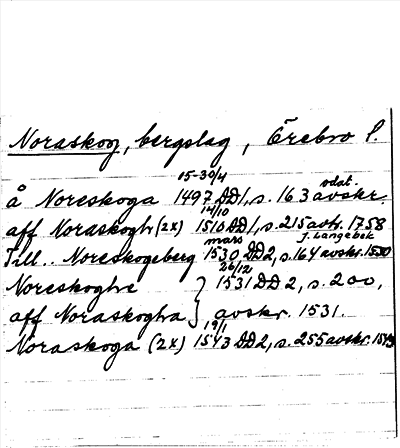 Noraskog, bergslag, Örebro l.
15-30/4 odat.
å Noreskoga 1497 DD1, s. 163 avskr.
14/10
aff Noraskogh (2x) 1510 DD1, s. 215 avskr. 1758
mars J. Langebek
Till.. Noreskogeberg 1530 DD2, s. 164 avskr. 1530
26/12
Noreskoghe } 1531 DD2, s. 200,
aff Noraskogha } avskr. 1531.
19/1
Noraskoga (2x) 1543 DD2, s. 255 avskr. 1543